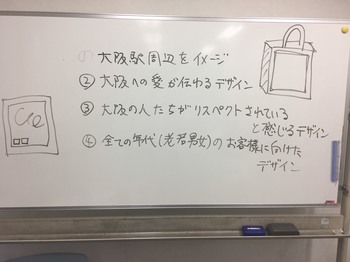 ① 大阪駅周辺をイメージ
② 大阪への愛が伝わるデザイン
③ 大阪の人たちがリスペクトされている
と感じるデザイン
④ 全ての年代(老若男女)のお客様に向けた
デザイン